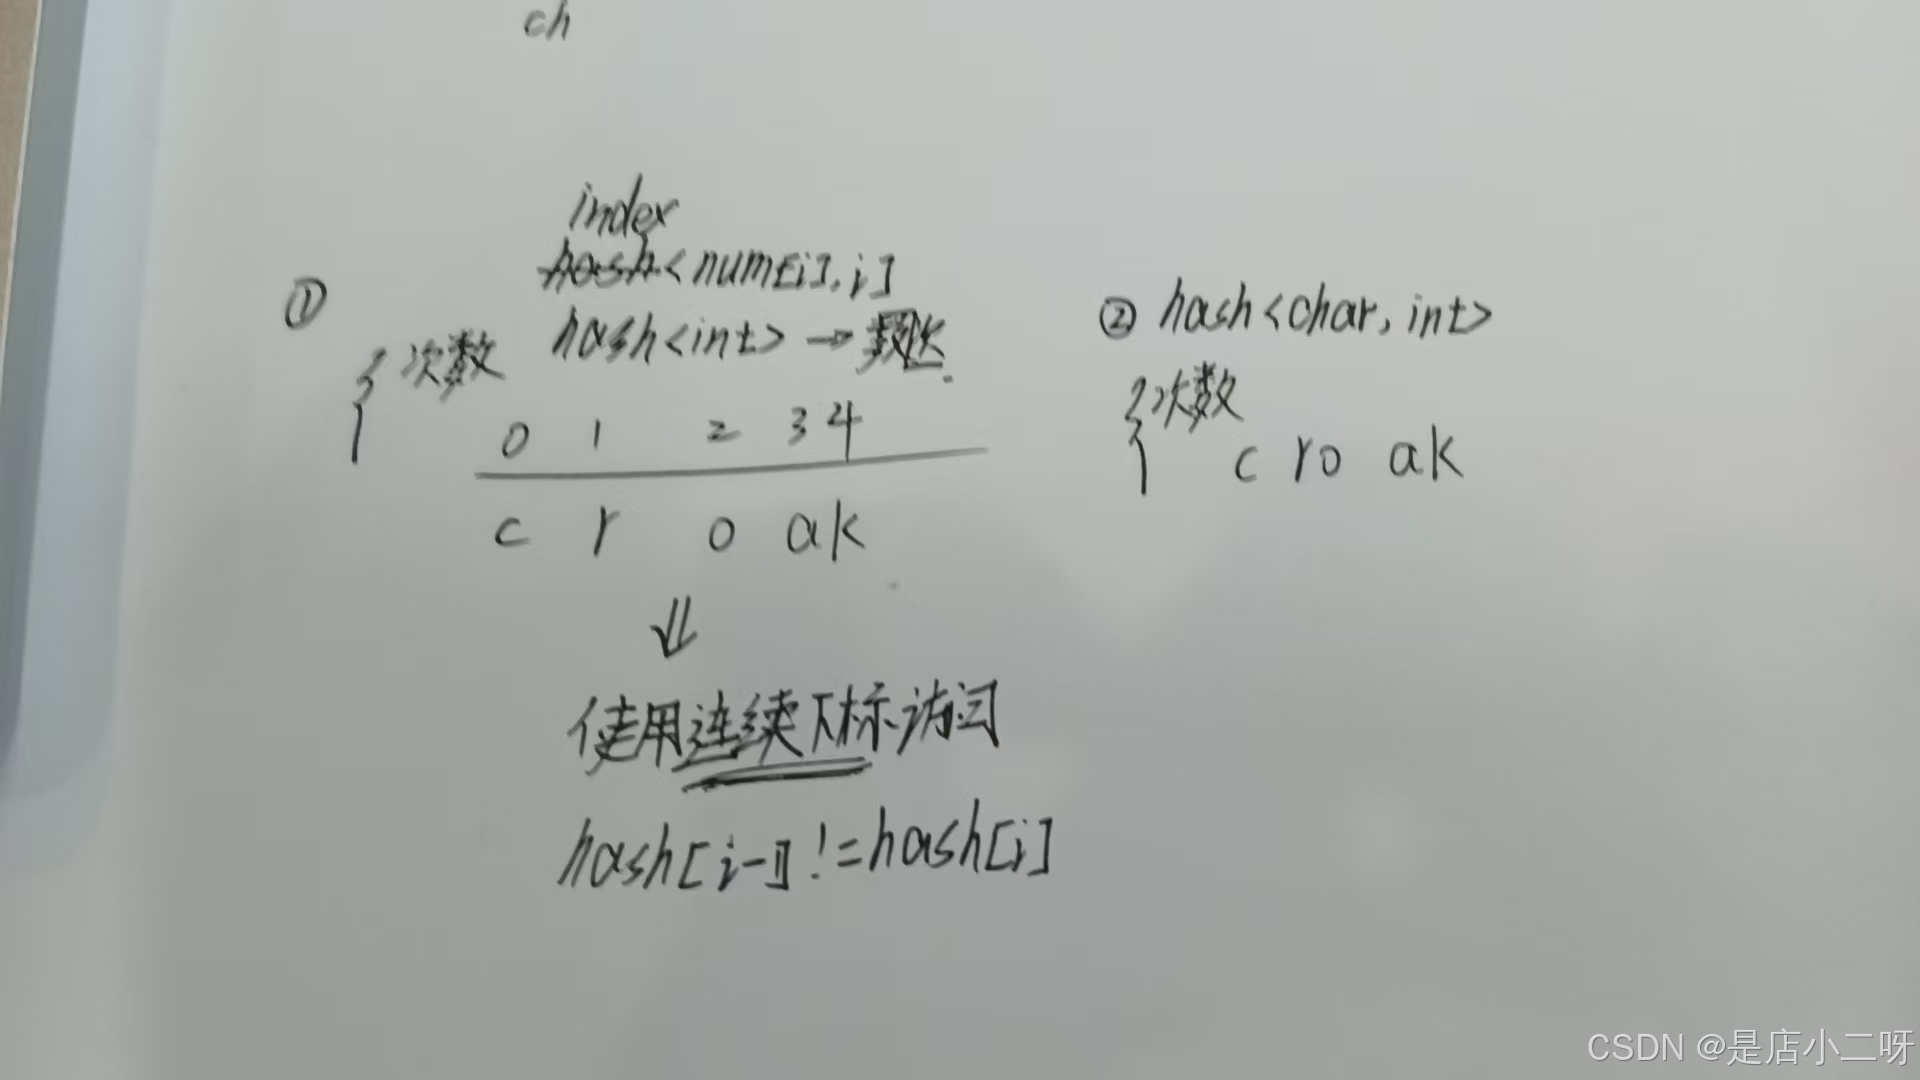 ch
index
hash< num[i], i]
① hash<int> →
次数
0 1 2 3 4
c r o a k
⇓
使用连续下标访问
hash[i-1] != hash[i]
② hash<char, int>
次数
c r o a k
CSDN @是店小二呀